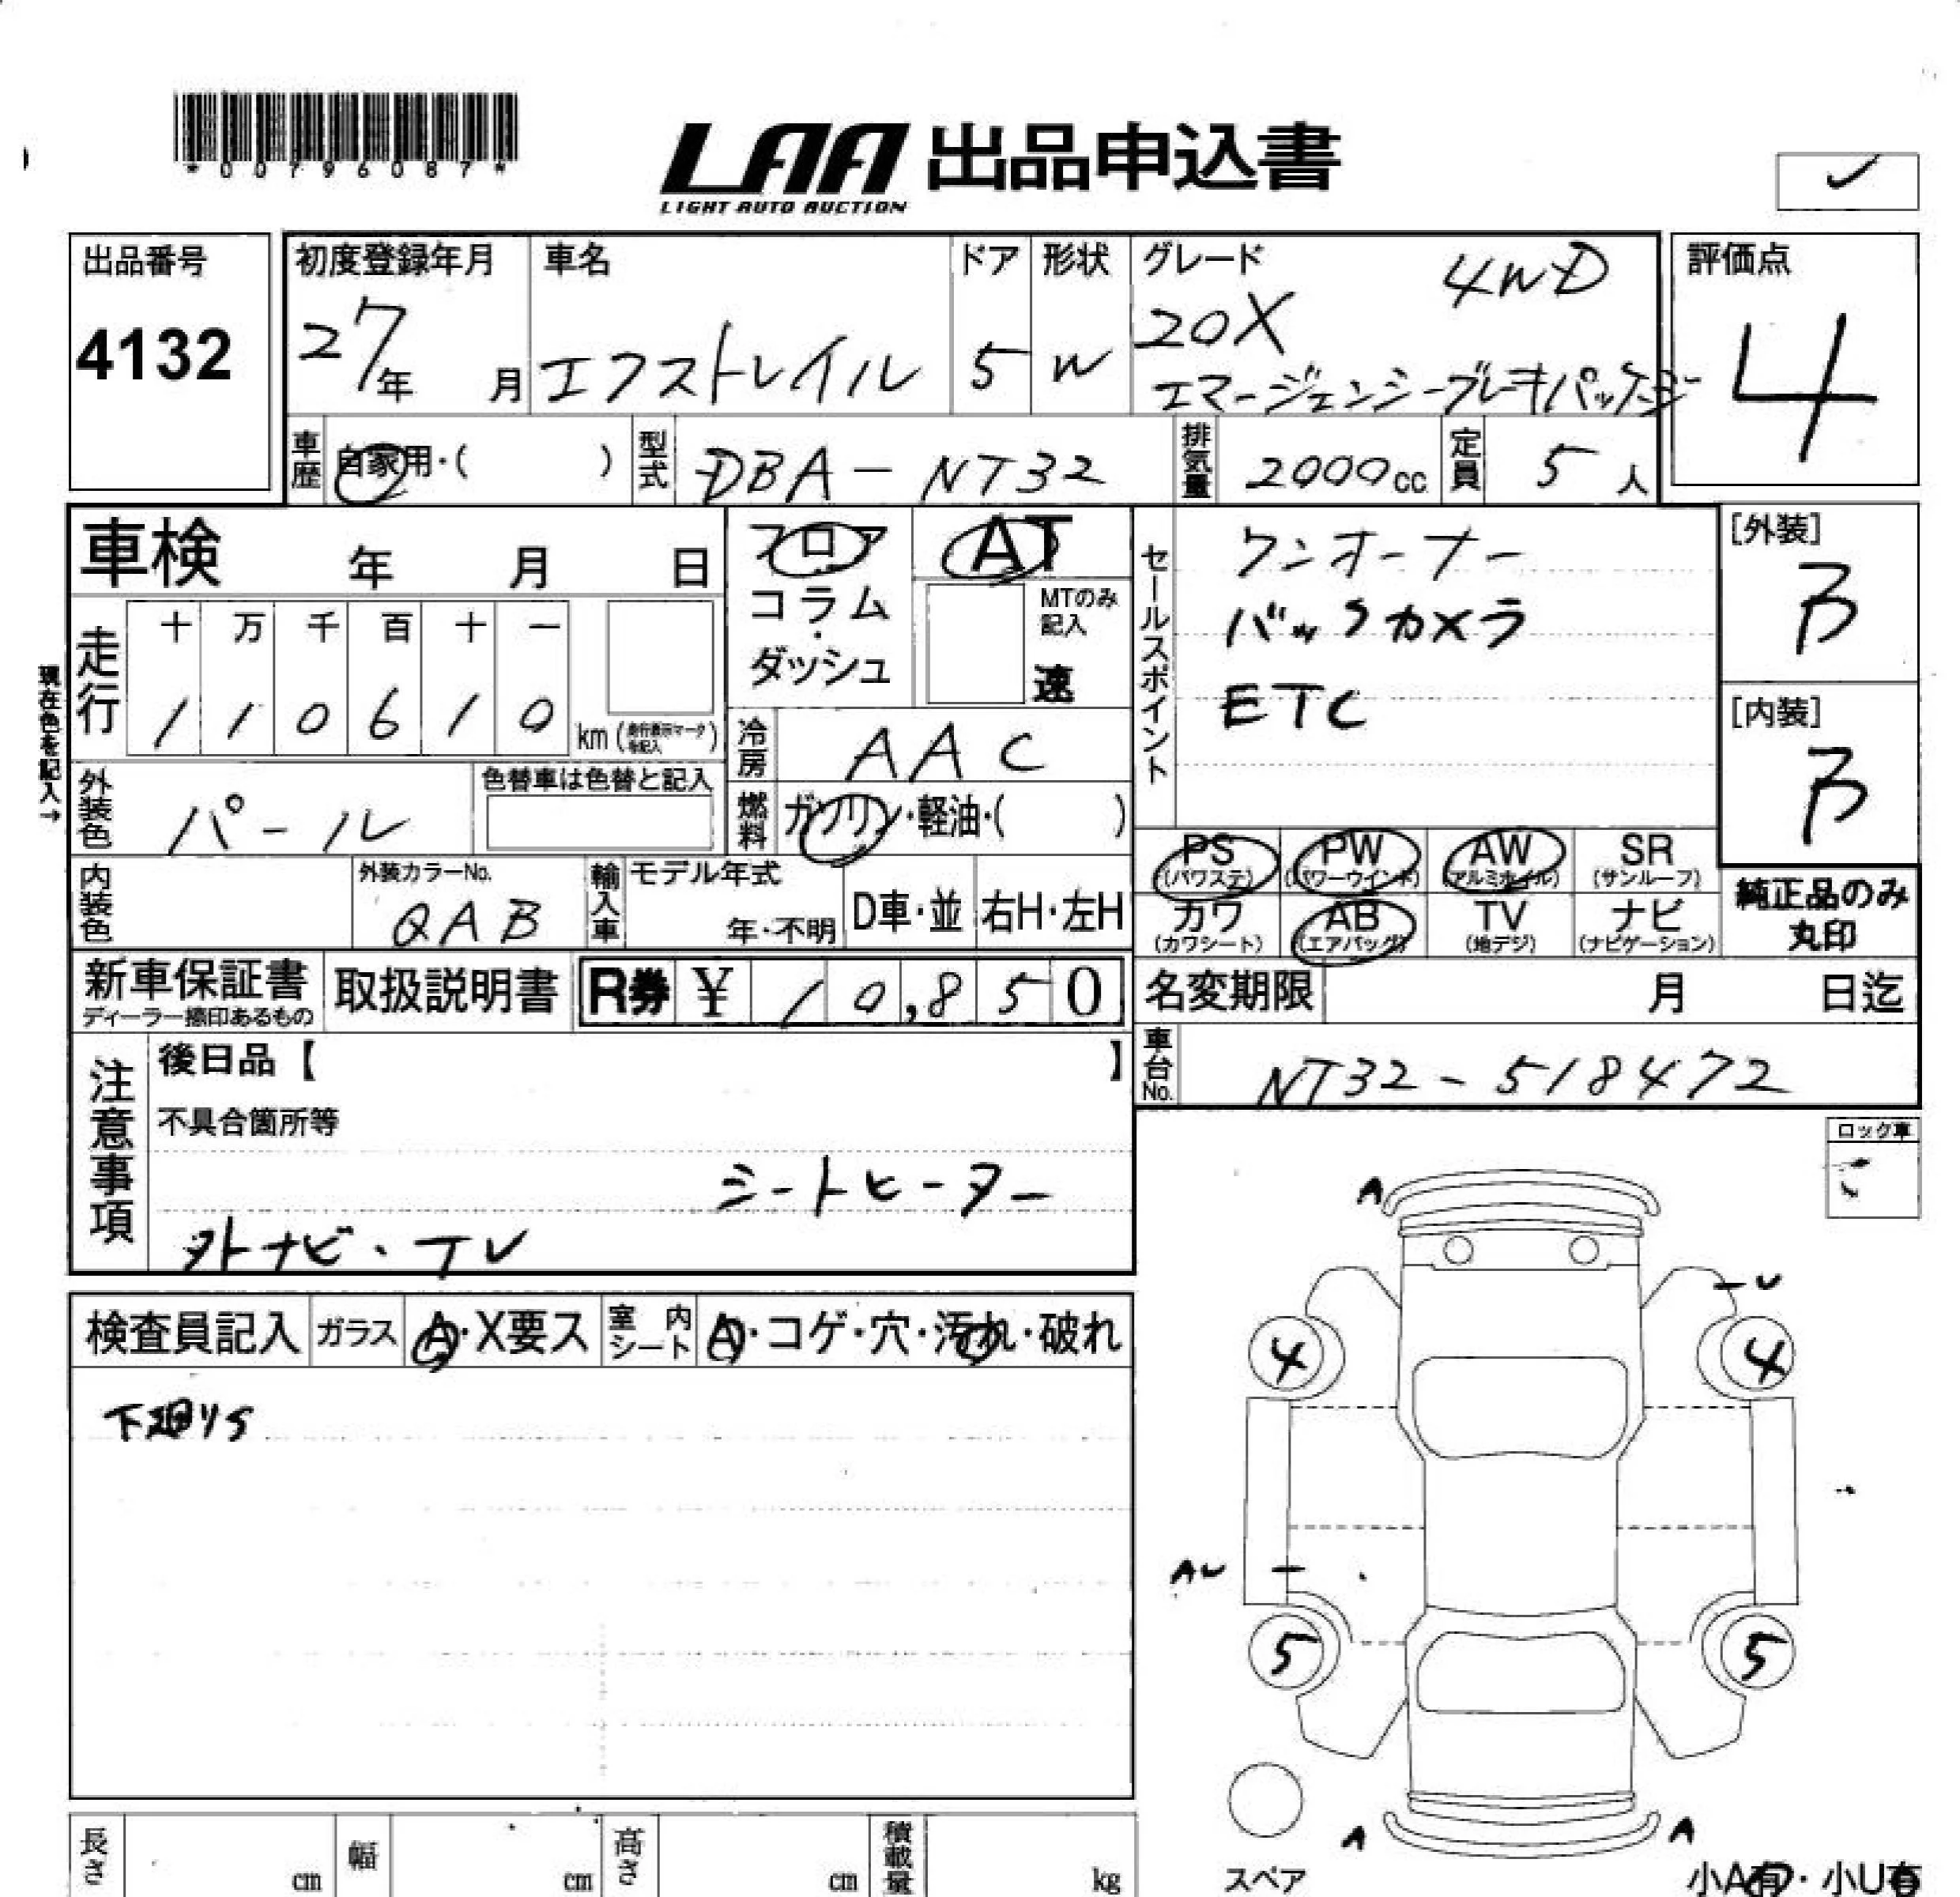 *00796087*
LAA 出品申込書
LIGHT AUTO AUCTION
出品番号
4132
初度登録年月
27年 月
車名
エクストレイル
ドア
5
形状
W
グレード
4WD
20X
エマージェンシーブレーキパッケージ
評価点
4
車歴
自家用・( )
型式
DBA-NT32
排気量
2000cc
定員
5人
車検 年 月 日
フロア
コラム
・
ダッシュ
AT
MTのみ
記入
速
セールスポイント
ワンオーナー
バックカメラ
ETC
[外装]
B
[内装]
B
現在色を記入→
走行
十 万 千 百 十 一
1 1 0 6 1 0
km (走行表示マークを記入)
冷房
AAC
外装色
パール
色替車は色替と記入
燃料
ガソリン・軽油・( )
PS
(パワステ)
PW
(パワーウインド)
AW
(アルミホイル)
SR
(サンルーフ)
カワ
(カワシート)
AB
(エアバッグ)
TV
(地デジ)
ナビ
(ナビゲーション)
純正品のみ
丸印
内装色
外装カラーNo.
QAB
輸入車
モデル年式
年・不明
D車・並
右H・左H
新車保証書
ディーラー捺印あるもの
取扱説明書
R券 ¥ 10,850
名変期限 月 日迄
車台No.
NT32-518472
注意事項
後日品【 】
不具合箇所等
シートヒーター
外ナビ・TV
ロック車
検査員記入
ガラス
A・X要ス
室内シート
A・コゲ・穴・汚れ・破れ
下廻りS
A
U
4
4
AU
5
5
A
A
スペア
小A有・小U有
長さ cm
幅 cm
高さ cm
積載量 kg